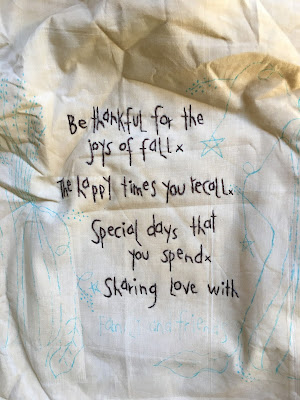 Be thankful for the
joys of fall x
The happy times you recall x
Special days that
you spend x
Sharing love with
Family and friends